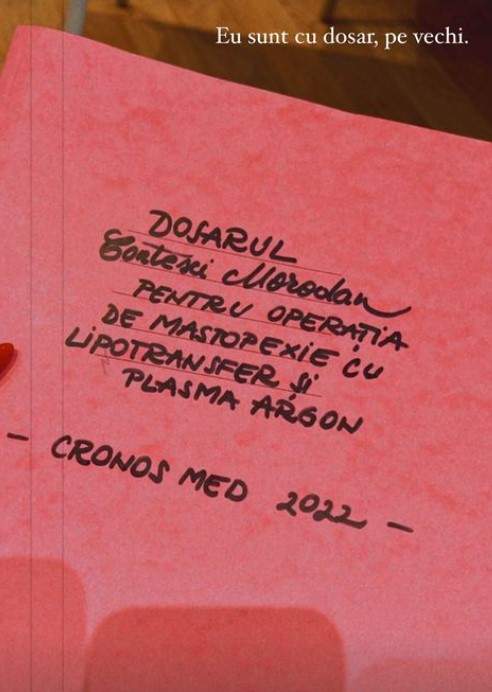 Eu sunt cu dosar, pe vechi.
DOSARUL
Contesei Morodan
PENTRU OPERAȚIA
DE MASTOPEXIE CU
LIPOTRANSFER ȘI
PLASMA ARGON
- CRONOS MED 2022 -